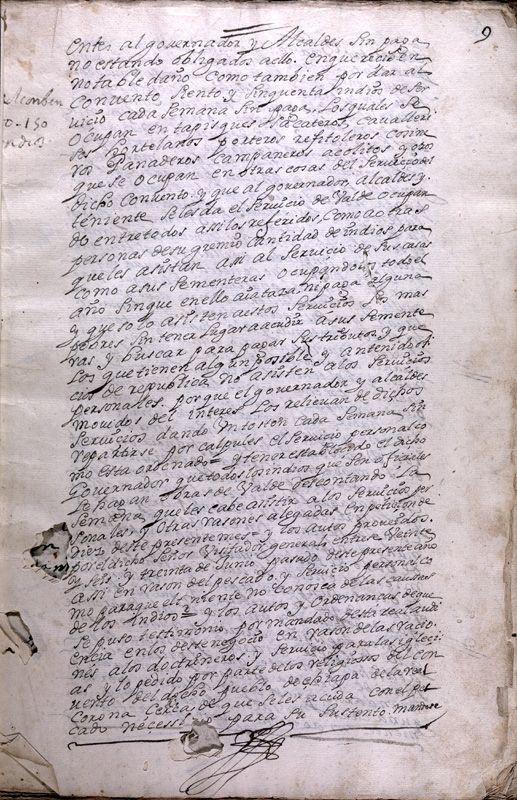 9
enten al governador y Alcaldes sin paga
no estando obligados a ello. en que reciven
notable daño como tambien por dar al
convento, siento y sinquenta indios de ser
vicio cada semana sin paga. Los quales se
al conben
to. 150
indios
ocupan en tapisques sacateros, cavalleri
sos hortelanos porteros refitoleros cosine
ros Panaderos campaneros acolitos y otros
que se ocupan en otras cosas del servicio de
dicho convento. y que al governador, alcaldes y
teniente se les da el servicio de Valde ocupan
do entre todos assi los referidos como a otras
personas de su gremio cantidad de indios para
que les asistan assi al servicio de sus casas
como a sus sementeras ocupandolos todo el
año sin que en ello aia tasa, ni paga alguna
y que solo asisten a estos servicios los mas
pobres sin tener lugar a acudir a sus semente
ras y buscar para pagar sus tributos y que
Los que tienen algun posible y an tenido ofi
cios de republica no asisten a los servicios
personales. porque el governador y alcaldes
movidos del interes Los relievan de dichos
servicios dando un toston cada semana sin
repartirse por calpules el servicio personal co
mo esta ordenado y teniendo el dicho
Governador que todos los indios que son oficiales
Le hagan obras de Valde descontando la
semana que les cabe asistir a los servicios per
sonales y otras rasones alegadas en peticion de
dies deste presente mes y los autos proveidos
por el dicho señor Visitador general en trese veinte
y seis y treinta de Junio pasado deste presente año
assi en rason del pescado y servicio personal co
mo para que el teniente no conosca de las causas
de los indios y los autos y ordenansas de que
se puso testimonio por mandado desta real audi
encia en los deste negocio en rason de las racio
nes a los doctrineros y servicio para las iglesi
as y lo pedido por parte de los religiosos del con
vento del dicho pueblo de chiapa de la real
Corona cerca de que se les acuda con el pes
cado necess para su sustento. mandase